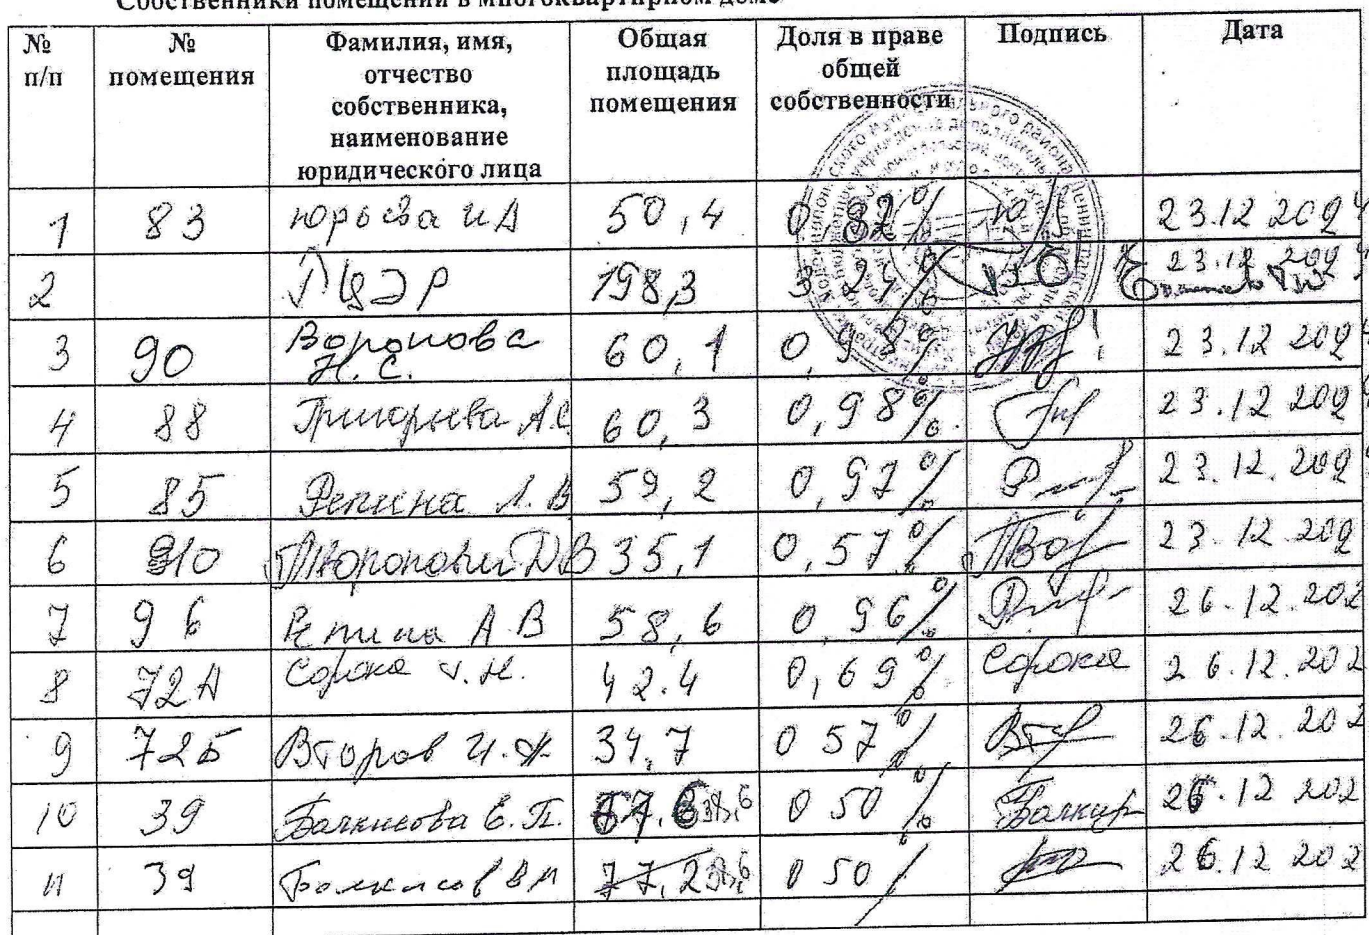 Собственники помещений в многоквартирном доме
№ п/п № помещения Фамилия, имя, отчество собственника, наименование юридического лица Общая площадь помещения Доля в праве общей собственности Подпись Дата
1 83 Юрьева И А 50,4 0 82% 23.12 2024
2 198,3 3 24% 23.12 2024
3 90 Воронова Н.С. 60,1 0,98% 23.12 2024
4 88 Григорьева А.С. 60,3 0,98% 23.12 2024
5 85 Репина Л.В 59,2 0,97% 23.12.2024
6 35,1 0,57% 23.12.202
7 96 Репина А В 58,6 0,96% 26.12.202
8 72А Сорока 42.4 0,69% Сорока 26.12.202
9 72Б Второв И.А. 34,7 0 57% 26.12.202
10 39 Е.П. 38,6 0 50% 26.12 202
11 39 ВМ 77,2 38,6 0 50 / 26.12 202